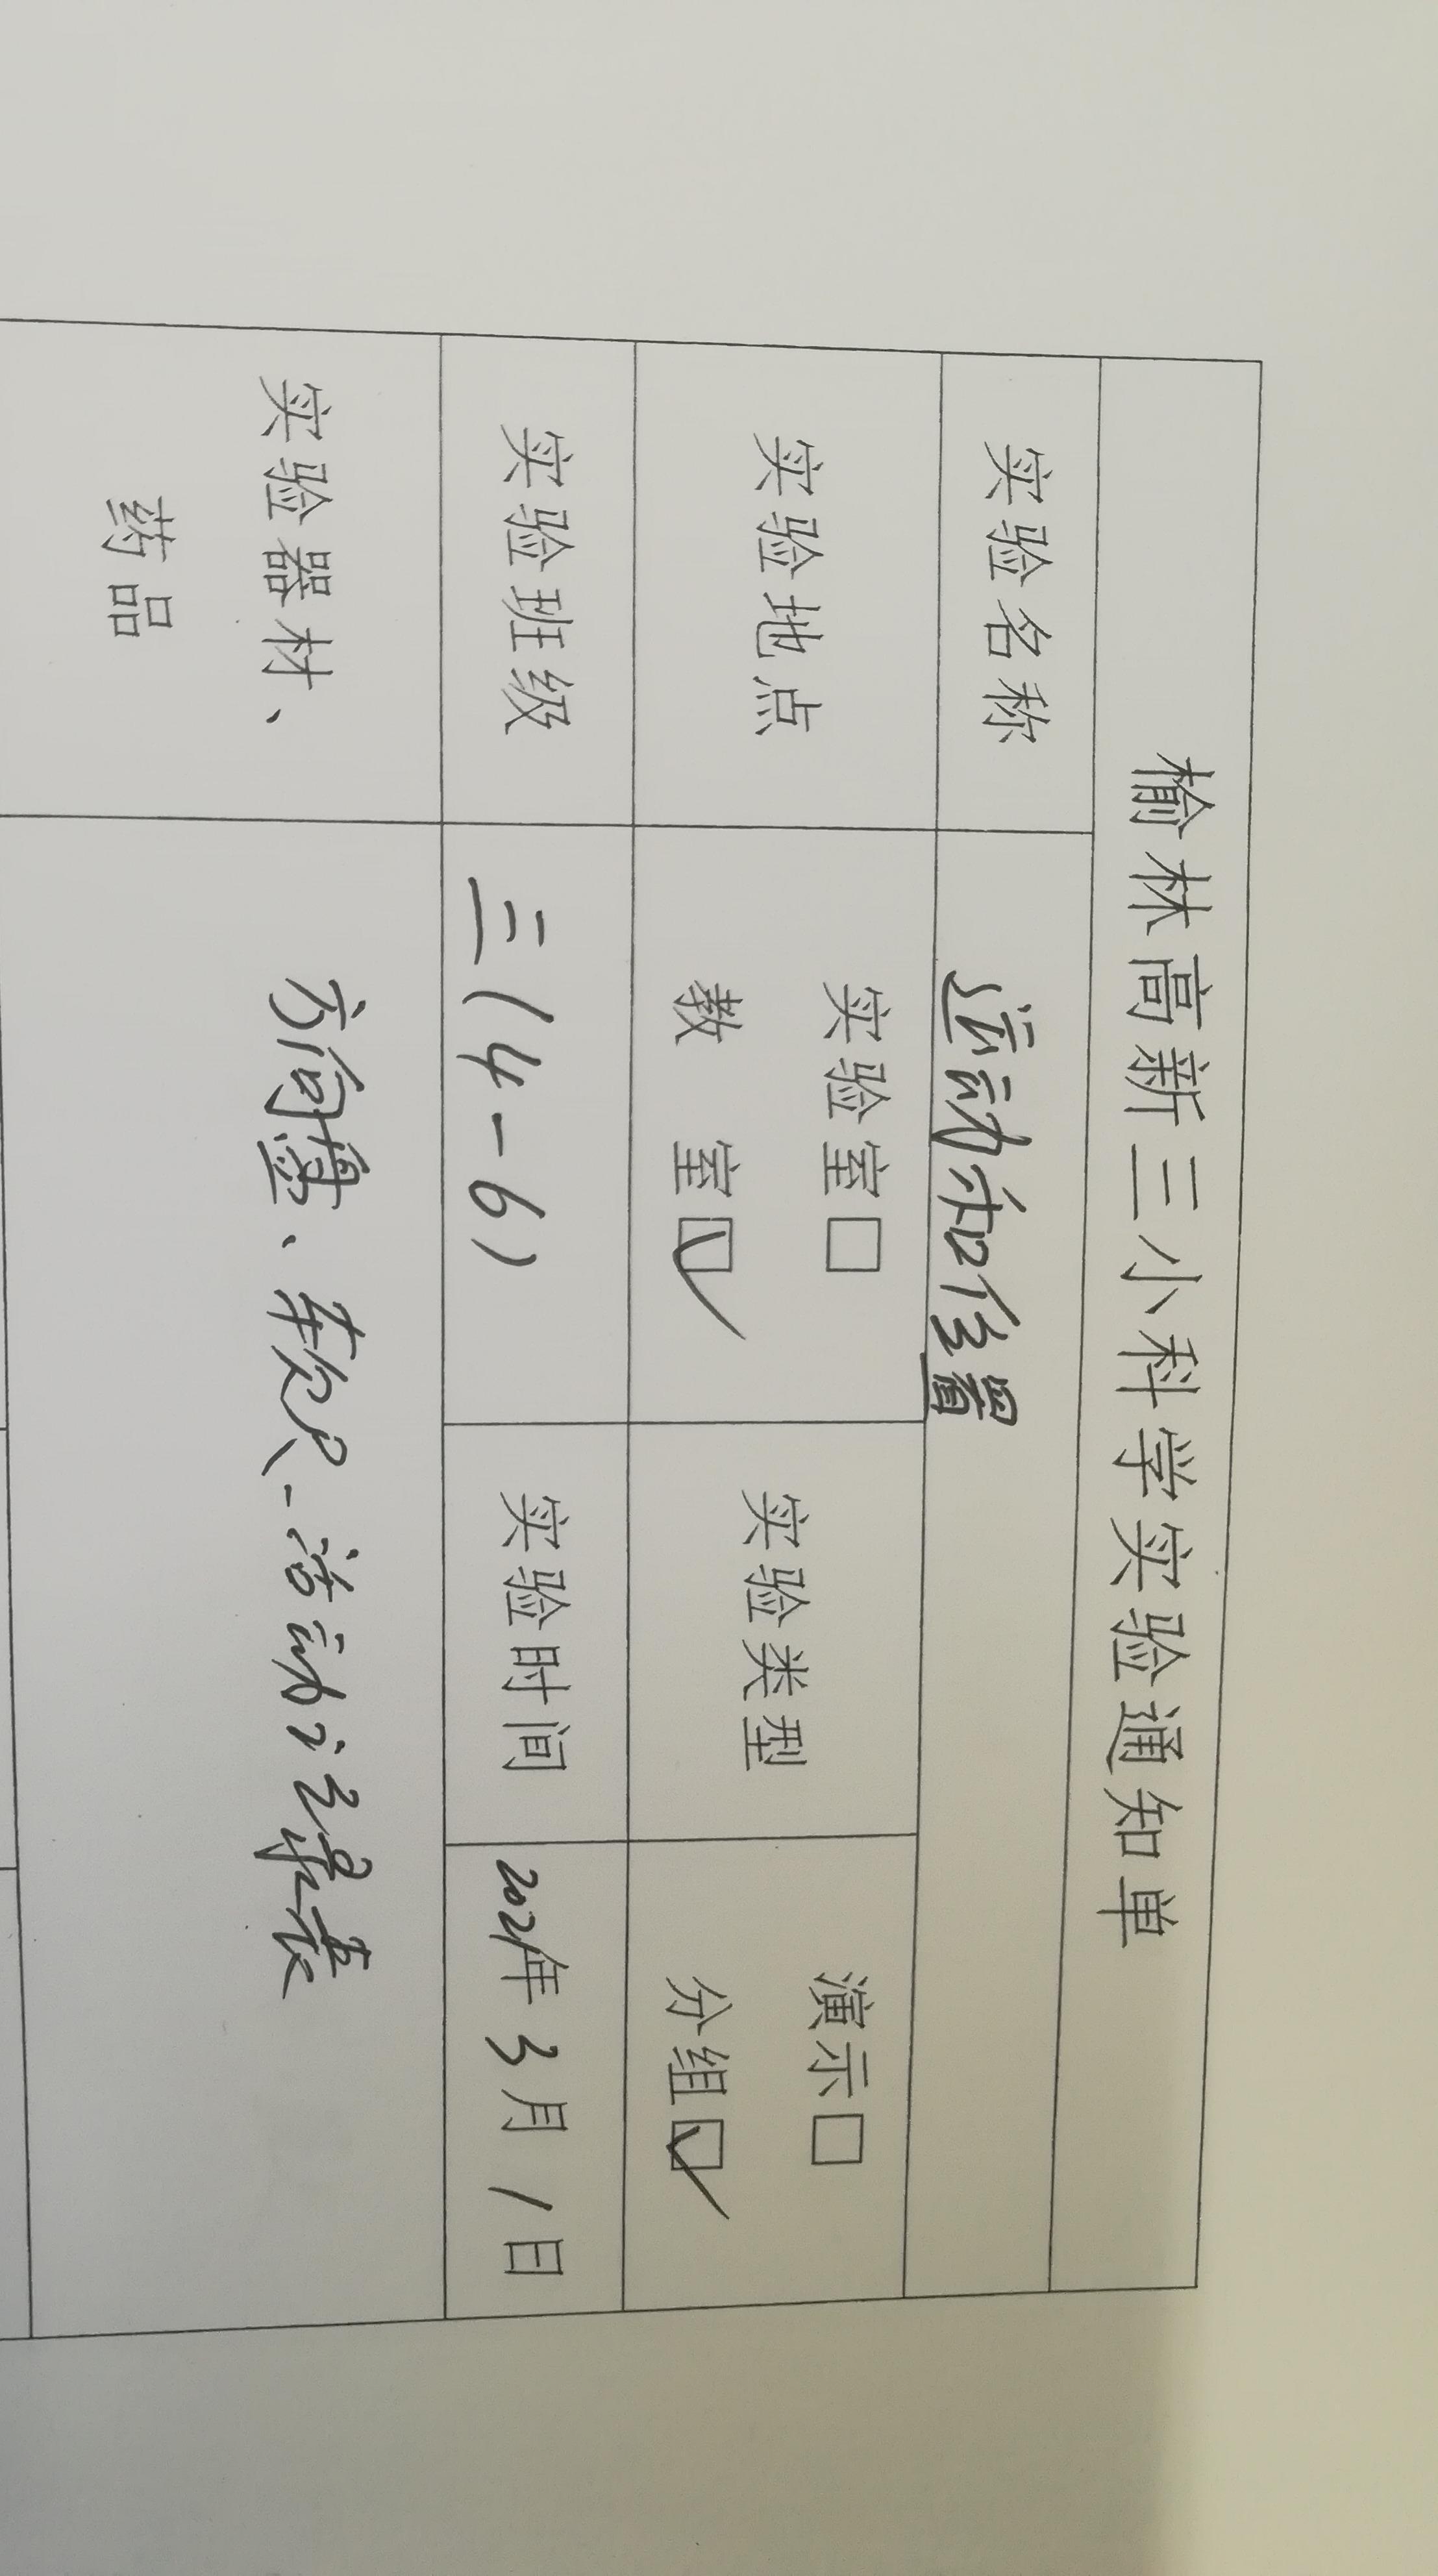 榆林高新三小科学实验通知单
实验名称 运动和位置
实验地点 实验室□ 教 室☑ 实验类型 演示□ 分组☑
实验班级 三(4-6) 实验时间 2021年3月1日
实验器材、药品 方向盘、软尺、活动记录表